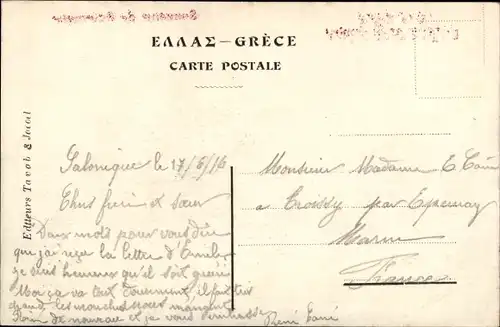 ΕΛΛΑΣ–GRÈCE
CARTE POSTALE
Editeurs Tavoh &
Salonique le 17/6/16
Chers frère et sœur
Deux mots pour vous dire
que j'ai reçu la lettre d'Emile
je suis heureux qu'il soit guéri
Moi ça va tout doucement il fait très
chaud, les mouches nous mangent
Rien de nouveau et je vous embrasse
René
Monsieur Madame E
a Troissy par Epernay
Marne
France